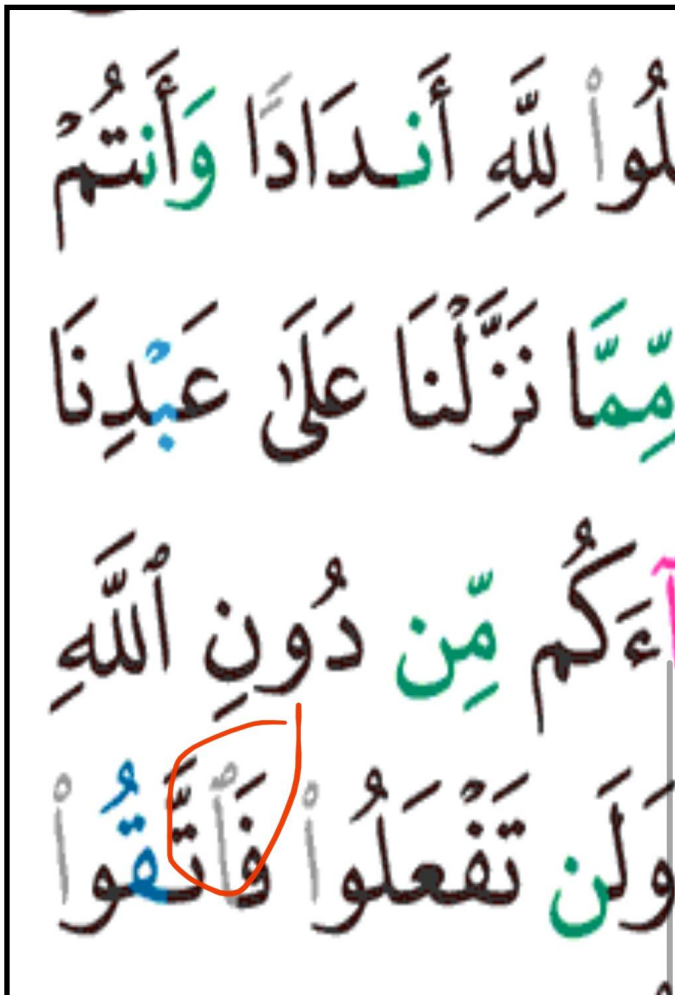 لُوا۟ لِلَّهِ أَندَادًا وَأَنتُمْ
مِّمَّا نَزَّلْنَا عَلَىٰ عَبْدِنَا
آءَكُم مِّن دُونِ ٱللَّهِ
وَلَن تَفْعَلُوا۟ فَٱتَّقُوا۟